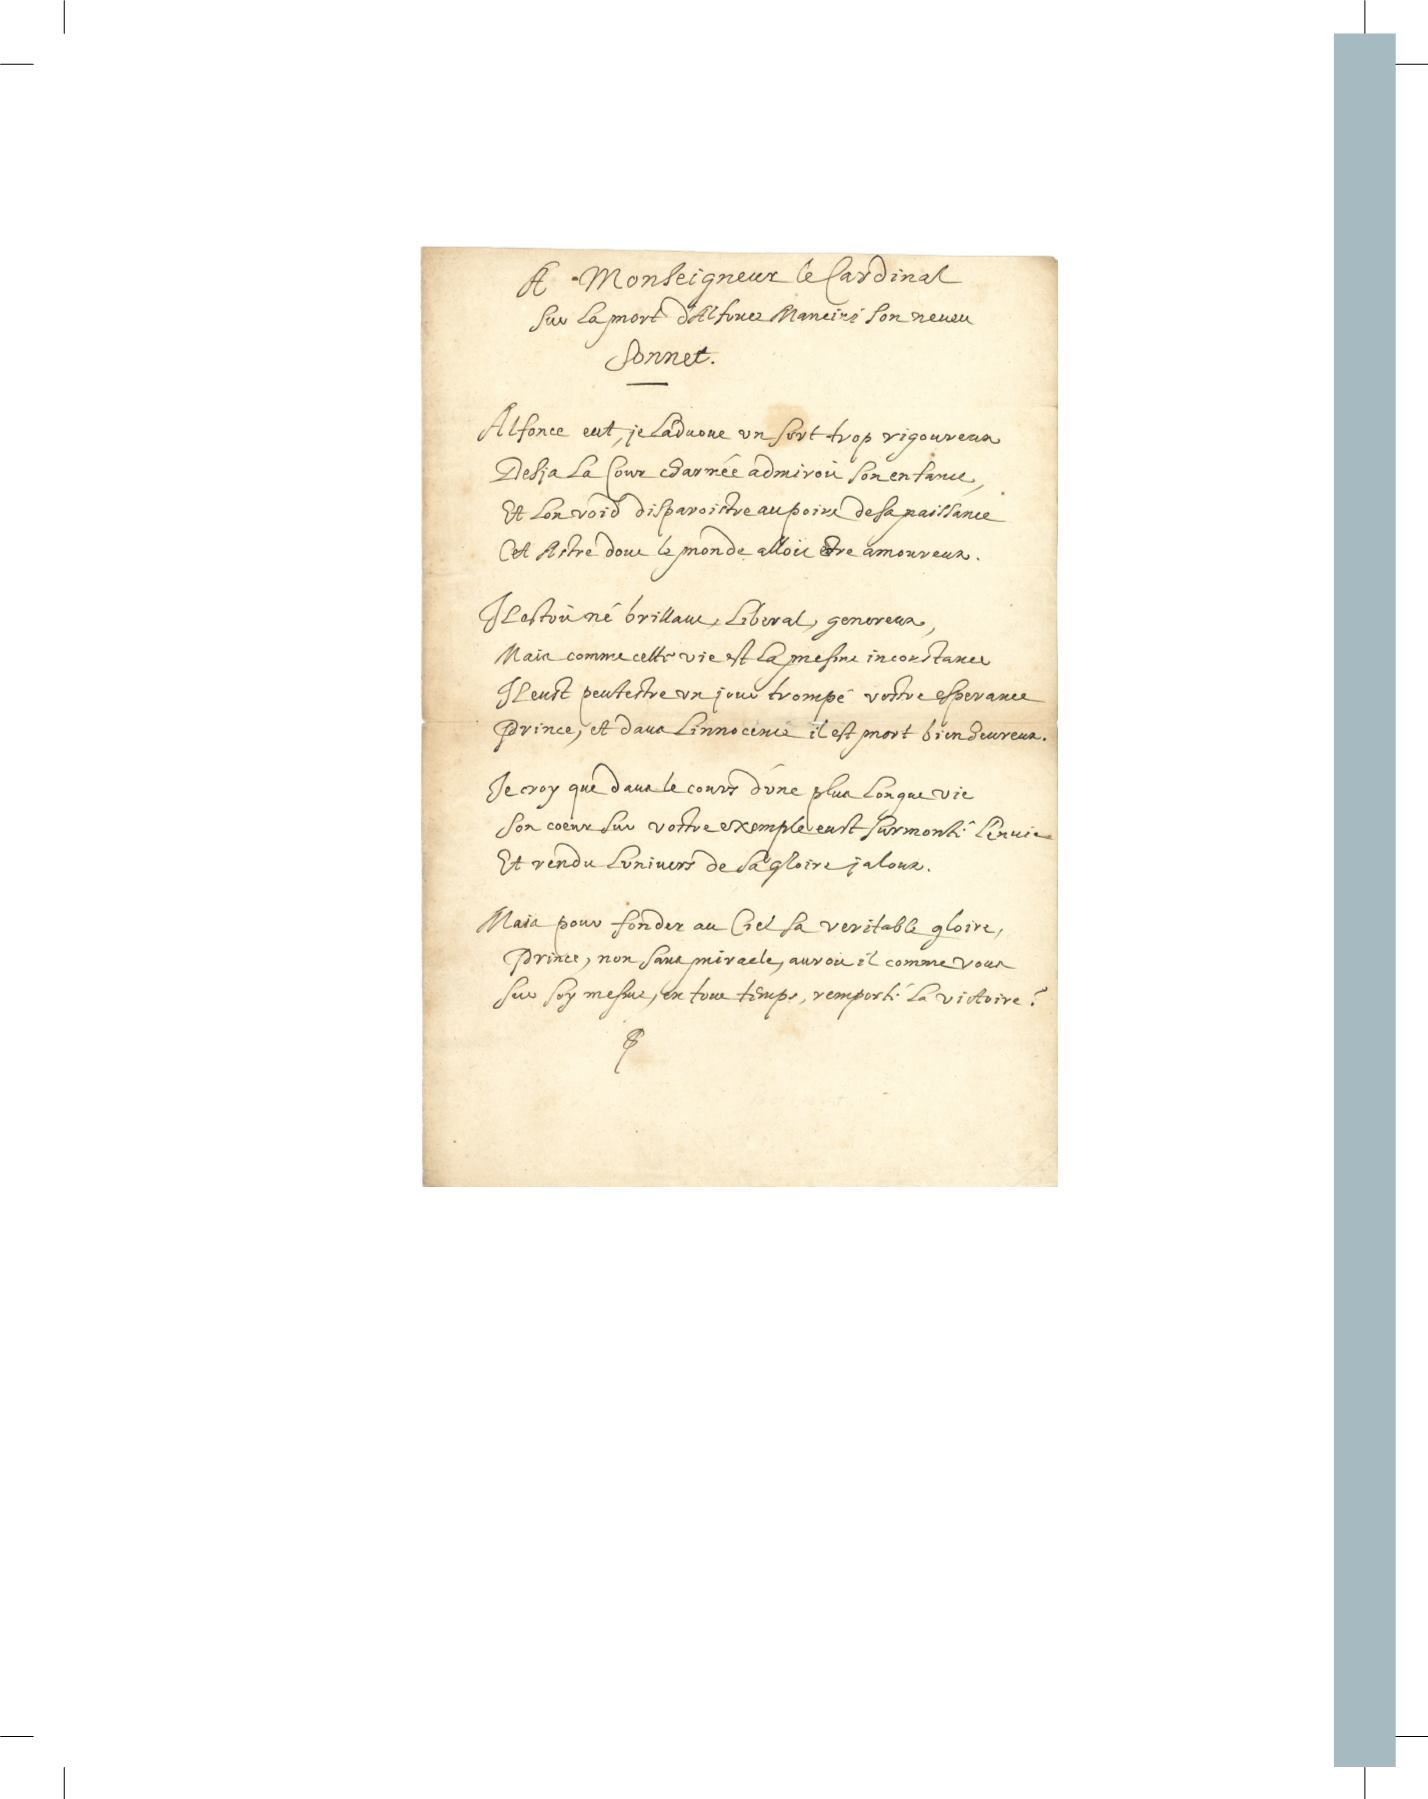 A Monseigneur le Cardinal
Sur La mort d'Alfonce Mancini son neueu
Sonnet.
Alfonce eut, je L'aduoue vn sort trop rigoureux
Desja La Cour charmée admiroit son enfance,
Et L'on void disparoistre au point de sa naissance
Cet Astre dont le monde alloit etre amoureux.
IL estoit né brillant, Liberal, genereux,
Mais comme cette vie est La mesme inconstance
IL eust peutestre vn jour trompé vostre esperance
Prince, et dans L'innocence il est mort bienheureux.
Je croy que dans le cours d'vne plus Longue vie
Son coeur sur vostre exemple eust surmonté L'enuie
Et rendu L'vniuers de sa gloire jaloux.
Mais pour fonder au Ciel sa veritable gloire,
Prince, non sans miracle, auroit il comme vous
Sur soy mesme, en tout temps, remporté La victoire?